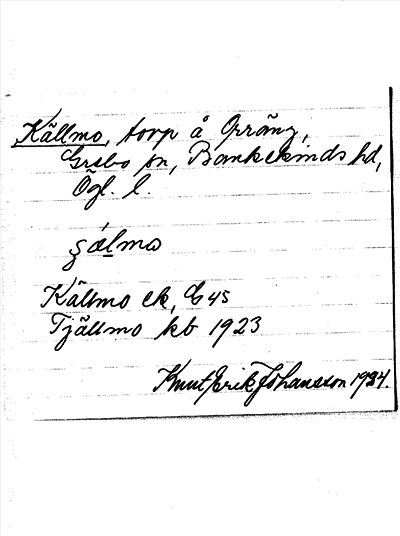 Källmo, torp å Orräng,
Grebo sn, Bankekinds hd,
Ögl. l.
ʂálmo
Källmo ek, E 45
Tjällmo kb 1923
Knut Erik Johansson 1934.